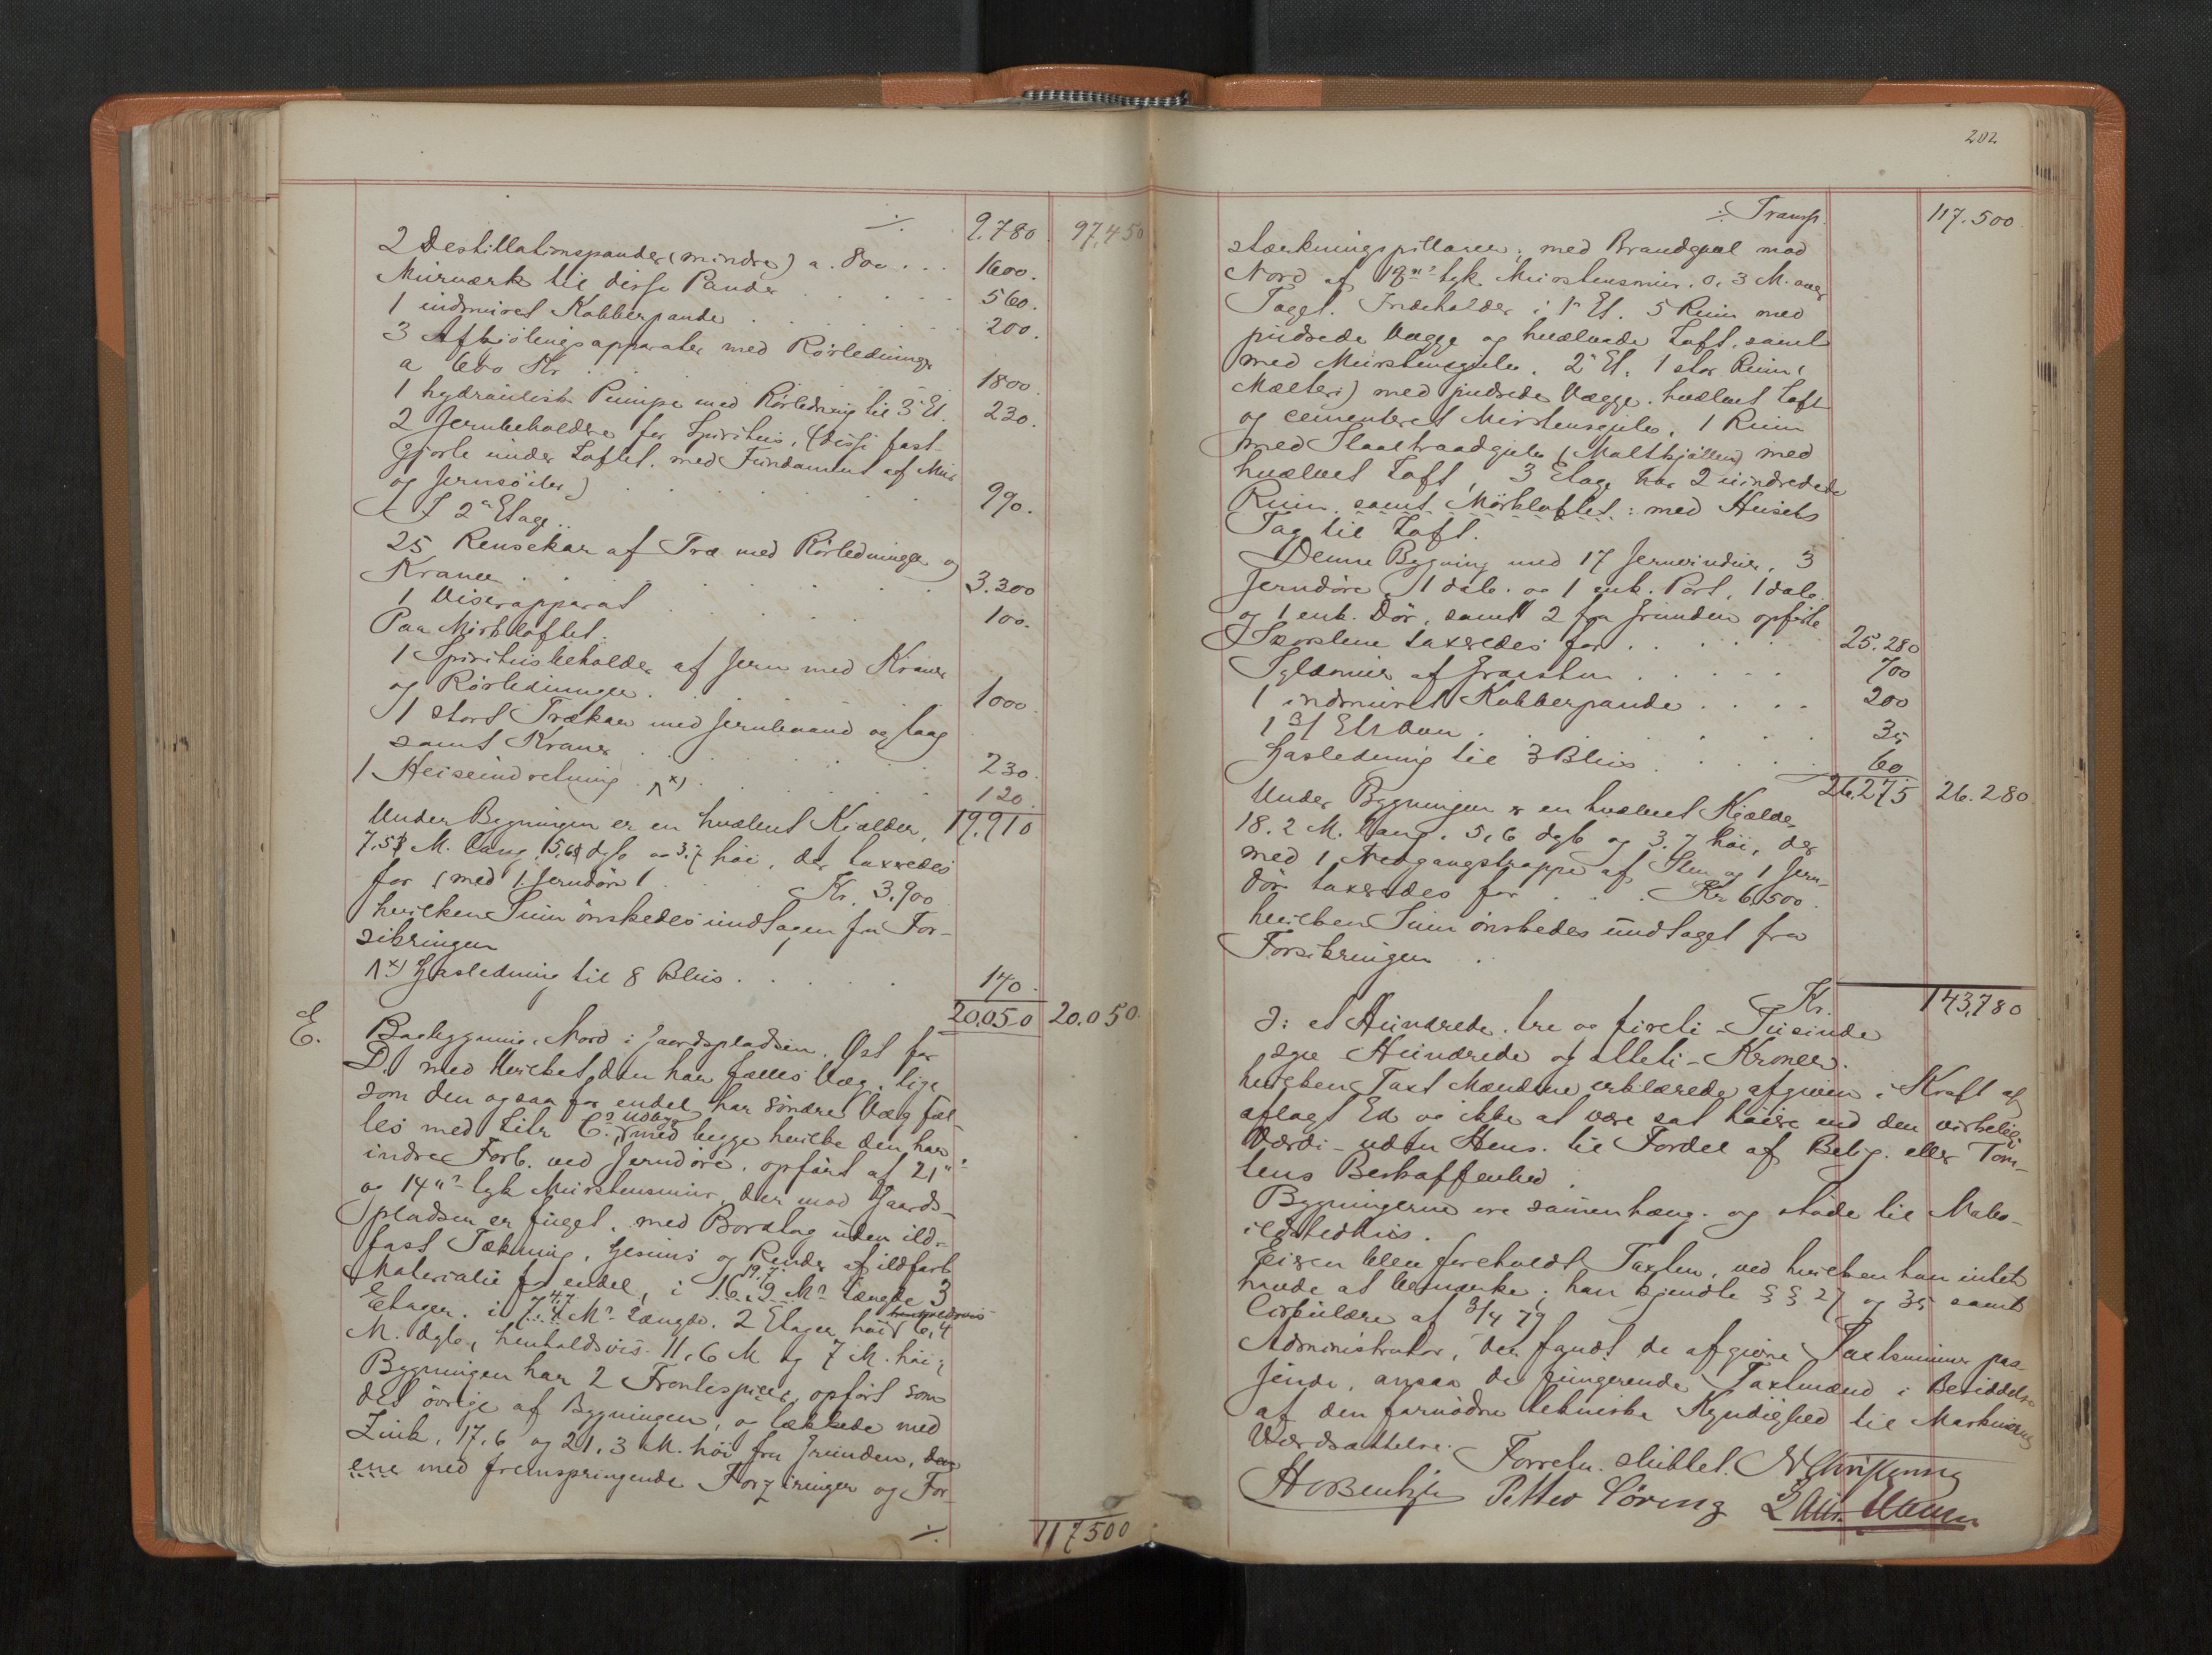 ÷ 9.780 97.450
2 Destillationspander (mindre) a. 800 . . . 1600.
Murværk til disse Pander . . . . . 560.
1 indmuret Kobberpande . . . . . . 200.
3 Afkjølingsapparater med Rørledninger
a 600 Kr. . . . . . 1800.
1 hydraulisk Pumpe med Rørledning til 3 Et. 230.
2 Jernbeholdere for Spiritus, (disse fast-
gjorte under Loftet. med Fundament af Mur
og Jernsöiler) . . . . . . . 990.
I 2 Etage.
25 Rensekar af Træ med Rörledninger og
Kraner . . . . . . . 3.300
1 Viserapparat . . . . . . 100.
Paa Mörkloftet.
1 Spiritusbeholder af Jern med Kraner
og Rörledninger . . . . . . 1000.
1 stort Trækar med Jernbaand og Laag
samt Kraner . . . . . . 230.
1 Heiseindretning x) . . . . . 120.
Under Bygningen er en hvælvet Kjælder, 19.910
7,5 M. lang, 5,6 dyb og 3,7 høi, der taxeredes
for (med 1 Jerndör) . . . Kr. 3.900
hvilken Sum önskedes undtagen fra For-
sikringen
x) Gasledning til 8 Blus . . . . . 140.
20.050 20.050
E. Bagbygning, Nord i Gaardspladsen, Øst for
D. med hvilket den har fælles Væg, lige
som den ogsaa for endel har söndre Væg fæl-
les med Litr C. Udbyg. med begge hvilke den har
indre Forb. ved Jerndöre. opført af 21"
og 14" tyk Murstensmur, der mod Gaards-
pladsen er fuget. med Bordtag uden ild-
fast Tækning, Gesims og Render af ildfast
Materialie for endel, i 16,9 M. Længde 3 19,7
Etager. i 7,4 M. Længde. 2 Etager, høi 6,4 4,7 henholdsvis
M. dyb, henholdsvis 11,6 M og 7 M. høi;
Bygningen har 2 Frontespicer, opført som
det övrige af Bygningen, og tækkede med
Zink, 17,6 og 21,3 M. høi fra Grunden, den
ene med fremspringende Forziringer og For-
÷ 117500
202
÷ Transp. 117.500
stærkningspillarer; med Brandgavl mod
Nord af 18" tyk Murstensmur. 0,3 M. over
Taget. Indeholder i 1 Et. 5 Rum med
pudsede Vægge og hvælvede Loft. samt
med Murstensgulv. 2 Et. 1 stor Rum (
Mælteri) med pudsede Vægge. hvælvet Loft
og cementeret Murstensgulv, 1 Rum
med Staaltraadgulv (Maltkjölle) med
hvælvet Loft, 3 Etage har 2 uindredede
Rum. samt Mörkloftet: med Husets
Tag til Loft.
Denne Bygning med 17 Jernvinduer, 3
Jerndöre, 1 dob. og 1 enk. Port, 1 dob.
og 1 enk. Dör, samt 2 fra Grunden opförte
Skorstene taxeredes for . . . . . 25.280
Syldmur af Graasten . . . . . 700
1 indmuret Kobberpande . . . . 200
1 3/ Et Ovn . . . . . . . 35
Gasledning til 3 Blus . . . . . 60
26.275 26.280
Under Bygningen er en hvælvet Kjælder
18.2 M. lang. 5,6 dyb og 3.7 høi, der
med 1 Nedgangstrappe af Sten og 1 Jern-
dör taxeredes for . . . Kr 6.500
hvilken Sum önskedes undtaget fra
Forsikringen .
Kr. 143.780
ɔ: et Hundrede, tre og firti-Tusinde
syv Hundrede og otteti-Kroner.
hvilken Taxt Mændene erklærede afgiven i Kraft af
aflagt Ed og ikke at være sat høiere end den virkelige
Værdi - uden Hens. til Fordel af Belig. eller Tom-
tens Beskaffenhed.
Bygningerne ere sammenhæng. og støde til Nabo-
ildstedhus.
Eieren blev foreholdt Taxten, ved hvilken han intet
havde at bemærke; han kjendte §§ 27 og 35 samt
Cirkulære af 3/4 79
Administrator, der fandt de afgivne Taxtsummer pas-
sende, ansaa de fungerende Taxtmænd i Besiddelse
af den fornødne tekniske Kyndighed til Maskinernes
Værdsættelse.
Forretn. sluttet. N Christensen
Petter Löring